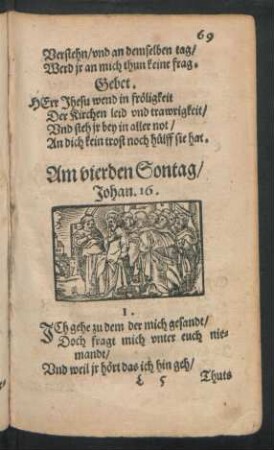 69
Verstehn/vnd an demselben tag/
Werd jr an mich thun keine frag.
Gebet.
HErr Jhesu wend in fröligkeit
Der Kirchen leid vnd trawrigkeit/
Vnd steh jr bey in aller not/
An dich kein trost noch hülff sie hat.
Am vierden Sontag/
Johan. 16.
1.
ICh gehe zu dem der mich gesandt/
Doch fragt mich vnter euch nie-
mandt/
Vnd weil jr hört das ich hin geh/
L 5 Thuts